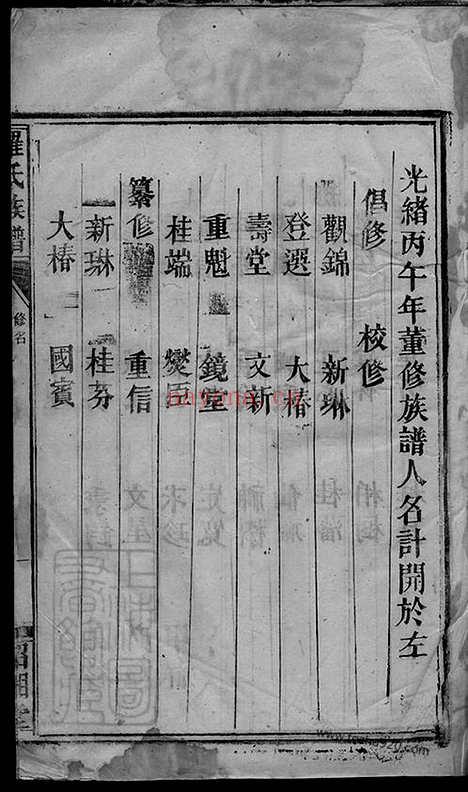 光緒丙午年董修族譜人名計開於左
倡修 校修
觀錦 新琳
登選 大椿
壽堂 文新
重魁 鏡堂
桂端 燮臣
纂修 重信
新琳 桂芬
大椿 國賓
羅氏族譜
修名